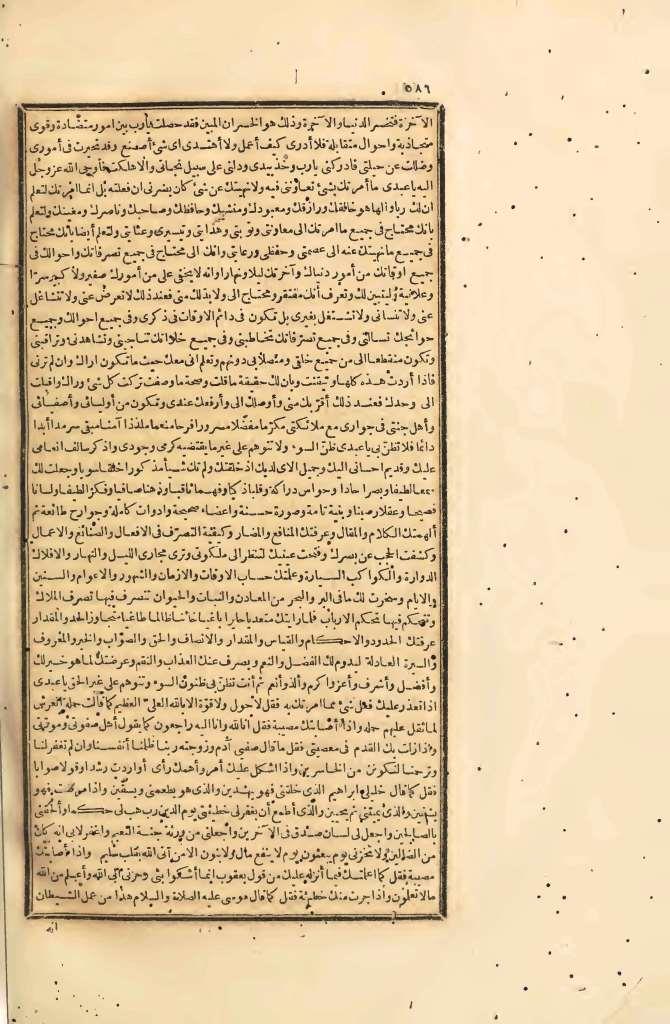 ٥٨٦
الآخرة فتخسر الدنيا والآخرة وذلك هو الخسران المبين فقد حصلت يارب بين امور متضادة وقوى
متجاذبة واحوال متقابلة فلا أدرى كيف أعمل ولا أهتدى اى شئ أصنع وقد تحيرت فى أمورى
وضللت عن حيلتى فادركنى يارب وخذ بيدى ودلنى على سبيل نجاتى والا هلكت فأوحى الله عز وجل
اليه ياعبدى ما أمرتك بشئ تعاوننى فيه ولا نهيتك عن شئ كان يضرنى ان فعلته بل انما امرتك لتعلم
ان لك ربا والها هو خالقك ورازقك ومعبودك ومنشيك وحافظك وصاحبك وناصرك ومعينك ولتعلم
بانك محتاج فى جميع ما امرتك الى معاونتى وتوفيقى وهدايتى وتيسيرى وعنايتى ولتعلم أيضا بانك محتاج
فى جميع ما نهيتك عنه الى عصمتى وحفظى ورعايتى وانك الى محتاج فى جميع تصرفاتك واحوالك فى
جميع اوقاتك من أمور دنياك وآخرتك ليلا ونهارا وانه لا يخفى على من أمورك صغير ولا كبير سرا
وعلانية وليتبين لك وتعرف أنك مفتقر ومحتاج الى ولا بد لك منى فعند ذلك لا تعرض عنى ولا تتشاغل
عنى ولا تنسانى ولا تشتغل بغيرى بل تكون فى دائم الاوقات فى ذكرى وفى جميع احوالك وجميع
حوائجك تسألنى وفى جميع تصرفاتك تخاطبنى وفى جميع خلواتك تناجينى وتشاهدنى وتراقبنى
وتكون منقطعا الى من جميع خلقى ومتصلا بى دونهم وتعلم انى معك حيث ما تكون اراك وان لم ترنى
فاذا أردت هذه كلها وتيقنت وبان لك حقيقة ما قلت وصحة ما وصفت تركت كل شئ وراك واقبلت
الى وحدك فعند ذلك أقربك منى وأوصلك الى وأرفعك عندى وتكون من أوليائى وأصفيائى
وأهل جنتى فى جوارى مع ملائكتى مكرما مفضلا مسرورا فرحا منعما ملذذا آمنا مبقى سرمدا أبدا
دائما فلا تظن بى ياعبدى ظن السوء ولا تتوهم على غير ما يقتضيه كرمى وجودى واذكر سالف انعامى
عليك وقديم احسانى اليك وجميل آلائى لديك اذ خلقتك ولم تك شيأ مذكورا خلقا سويا وجعلت لك
سمعا لطيفا وبصرا حادا وحواس دراكة وقلبا ذكيا وفهما ثاقبا وذهنا صافيا وفكرا لطيفا ولسانا
فصيحا وعقلا رصينا وبنية تامة وصورة حسنة واعضاء صحيحة وادوات كاملة وجوارح طائعة ثم
ألهمتك الكلام والمقال وعرفتك المنافع والمضار وكيفية التصرف فى الافعال والصنائع والاعمال
وكشفت الحجب عن بصرك وفتحت عينيك لتنظر الى ملكوتى وترى مجارى الليل والنهار والافلاك
الدوارة والكواكب السيارة وعلمتك حساب الاوقات والازمان والشهور والاعوام والسنين
والايام وسخرت لك ما فى البر والبحر من المعادن والنبات والحيوان تتصرف فيها تصرف الملاك
وتتحكم فيها تحكم الارباب فلما رايتك متعديا جايرا باغيا خائنا ظالما طاغيا متجاوزا الحد والمقدار
عرفتك الحدود والاحكام والقياس والمقدار والانصاف والحق والصواب والخير والمعروف
والسيرة العادلة ليدوم لك الفضل والنعم ويصرف عنك العذاب والنقم وعرضتك لما هو خير لك
وأفضل وأشرف وأعز وأكرم وألذ وأنعم ثم أنت تظن بى ظنون السوء وتتوهم على غير الحق ياعبدى
اذا تعذر عليك فعل شئ مما امرتك به فقل لا حول ولا قوة الا بالله العلى العظيم كما قالت حملة العرش
لما ثقل عليهم حمله واذا أصابتك مصيبة فقل انا لله وانا اليه راجعون كما يقول أهل صفوتى ومودتى
واذا زلت بك القدم فى معصيتى فقل ما قال صفيى آدم وزوجته ربنا ظلمنا أنفسنا وان لم تغفر لنا
وترحمنا لنكونن من الخاسرين واذا اشكل عليك أمر وأهمك رأى أو اردت رشدا وقولا صوابا
فقل كما قال خليلى ابراهيم الذى خلقنى فهو يهدين والذى هو يطعمنى ويسقين واذا مرضت فهو
يشفين والذى يميتنى ثم يحيين والذى أطمع أن يغفر لى خطيئتى يوم الدين رب هب لى حكما وألحقنى
بالصالحين واجعل لى لسان صدق فى الآخرين واجعلنى من ورثة جنة النعيم واغفر لابى انه كان
من الضالين ولا تخزنى يوم يبعثون يوم لا ينفع مال ولا بنون الا من أتى الله بقلب سليم واذا أصابتك
مصيبة فقل كما علمتك فيما أنزله عليك من قول يعقوب انما أشكوا بثى وحزنى الى الله وأعلم من الله
مالا تعلمون واذا جرت منك خطيئة فقل كما قال موسى عليه الصلاة والسلام هذا من عمل الشيطان
انه